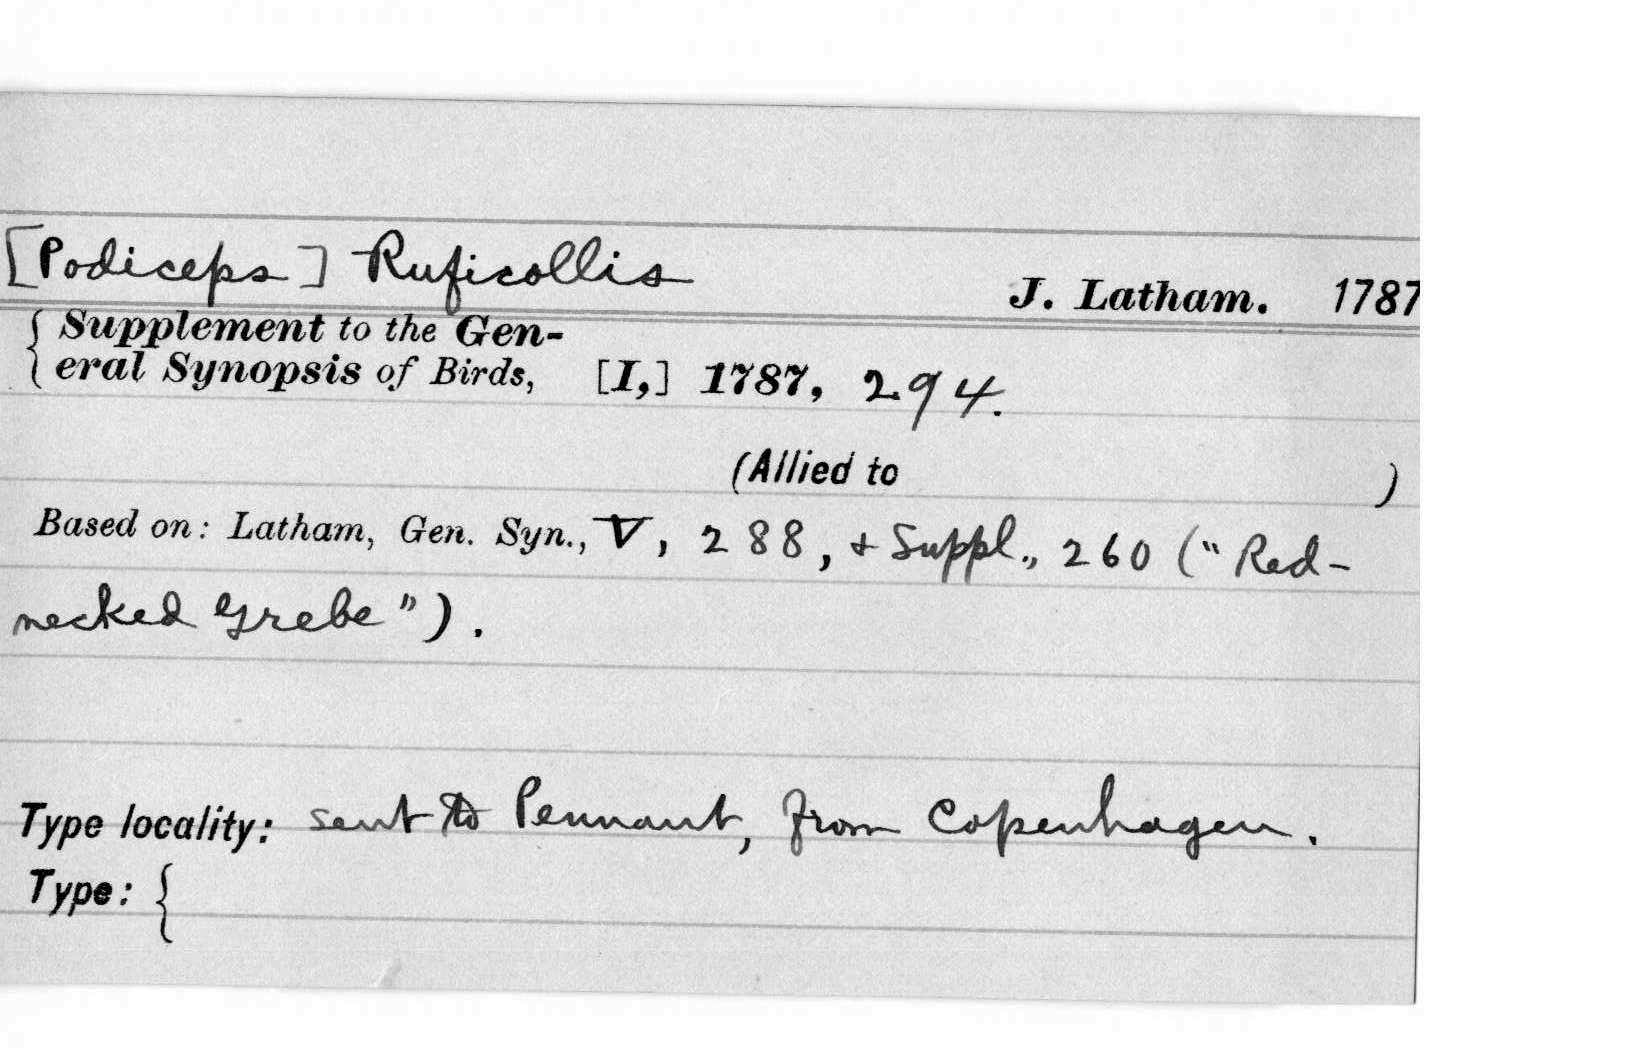 [Podiceps] Ruficollis J. Latham. 1787
{ Supplement to the Gen-
eral Synopsis of Birds, [I,] 1787, 294.
(Allied to )
Based on: Latham, Gen. Syn., V, 288, + Suppl., 260 ("Red-
necked Grebe").
Type locality: sent to Pennant, from Copenhagen.
Type: {